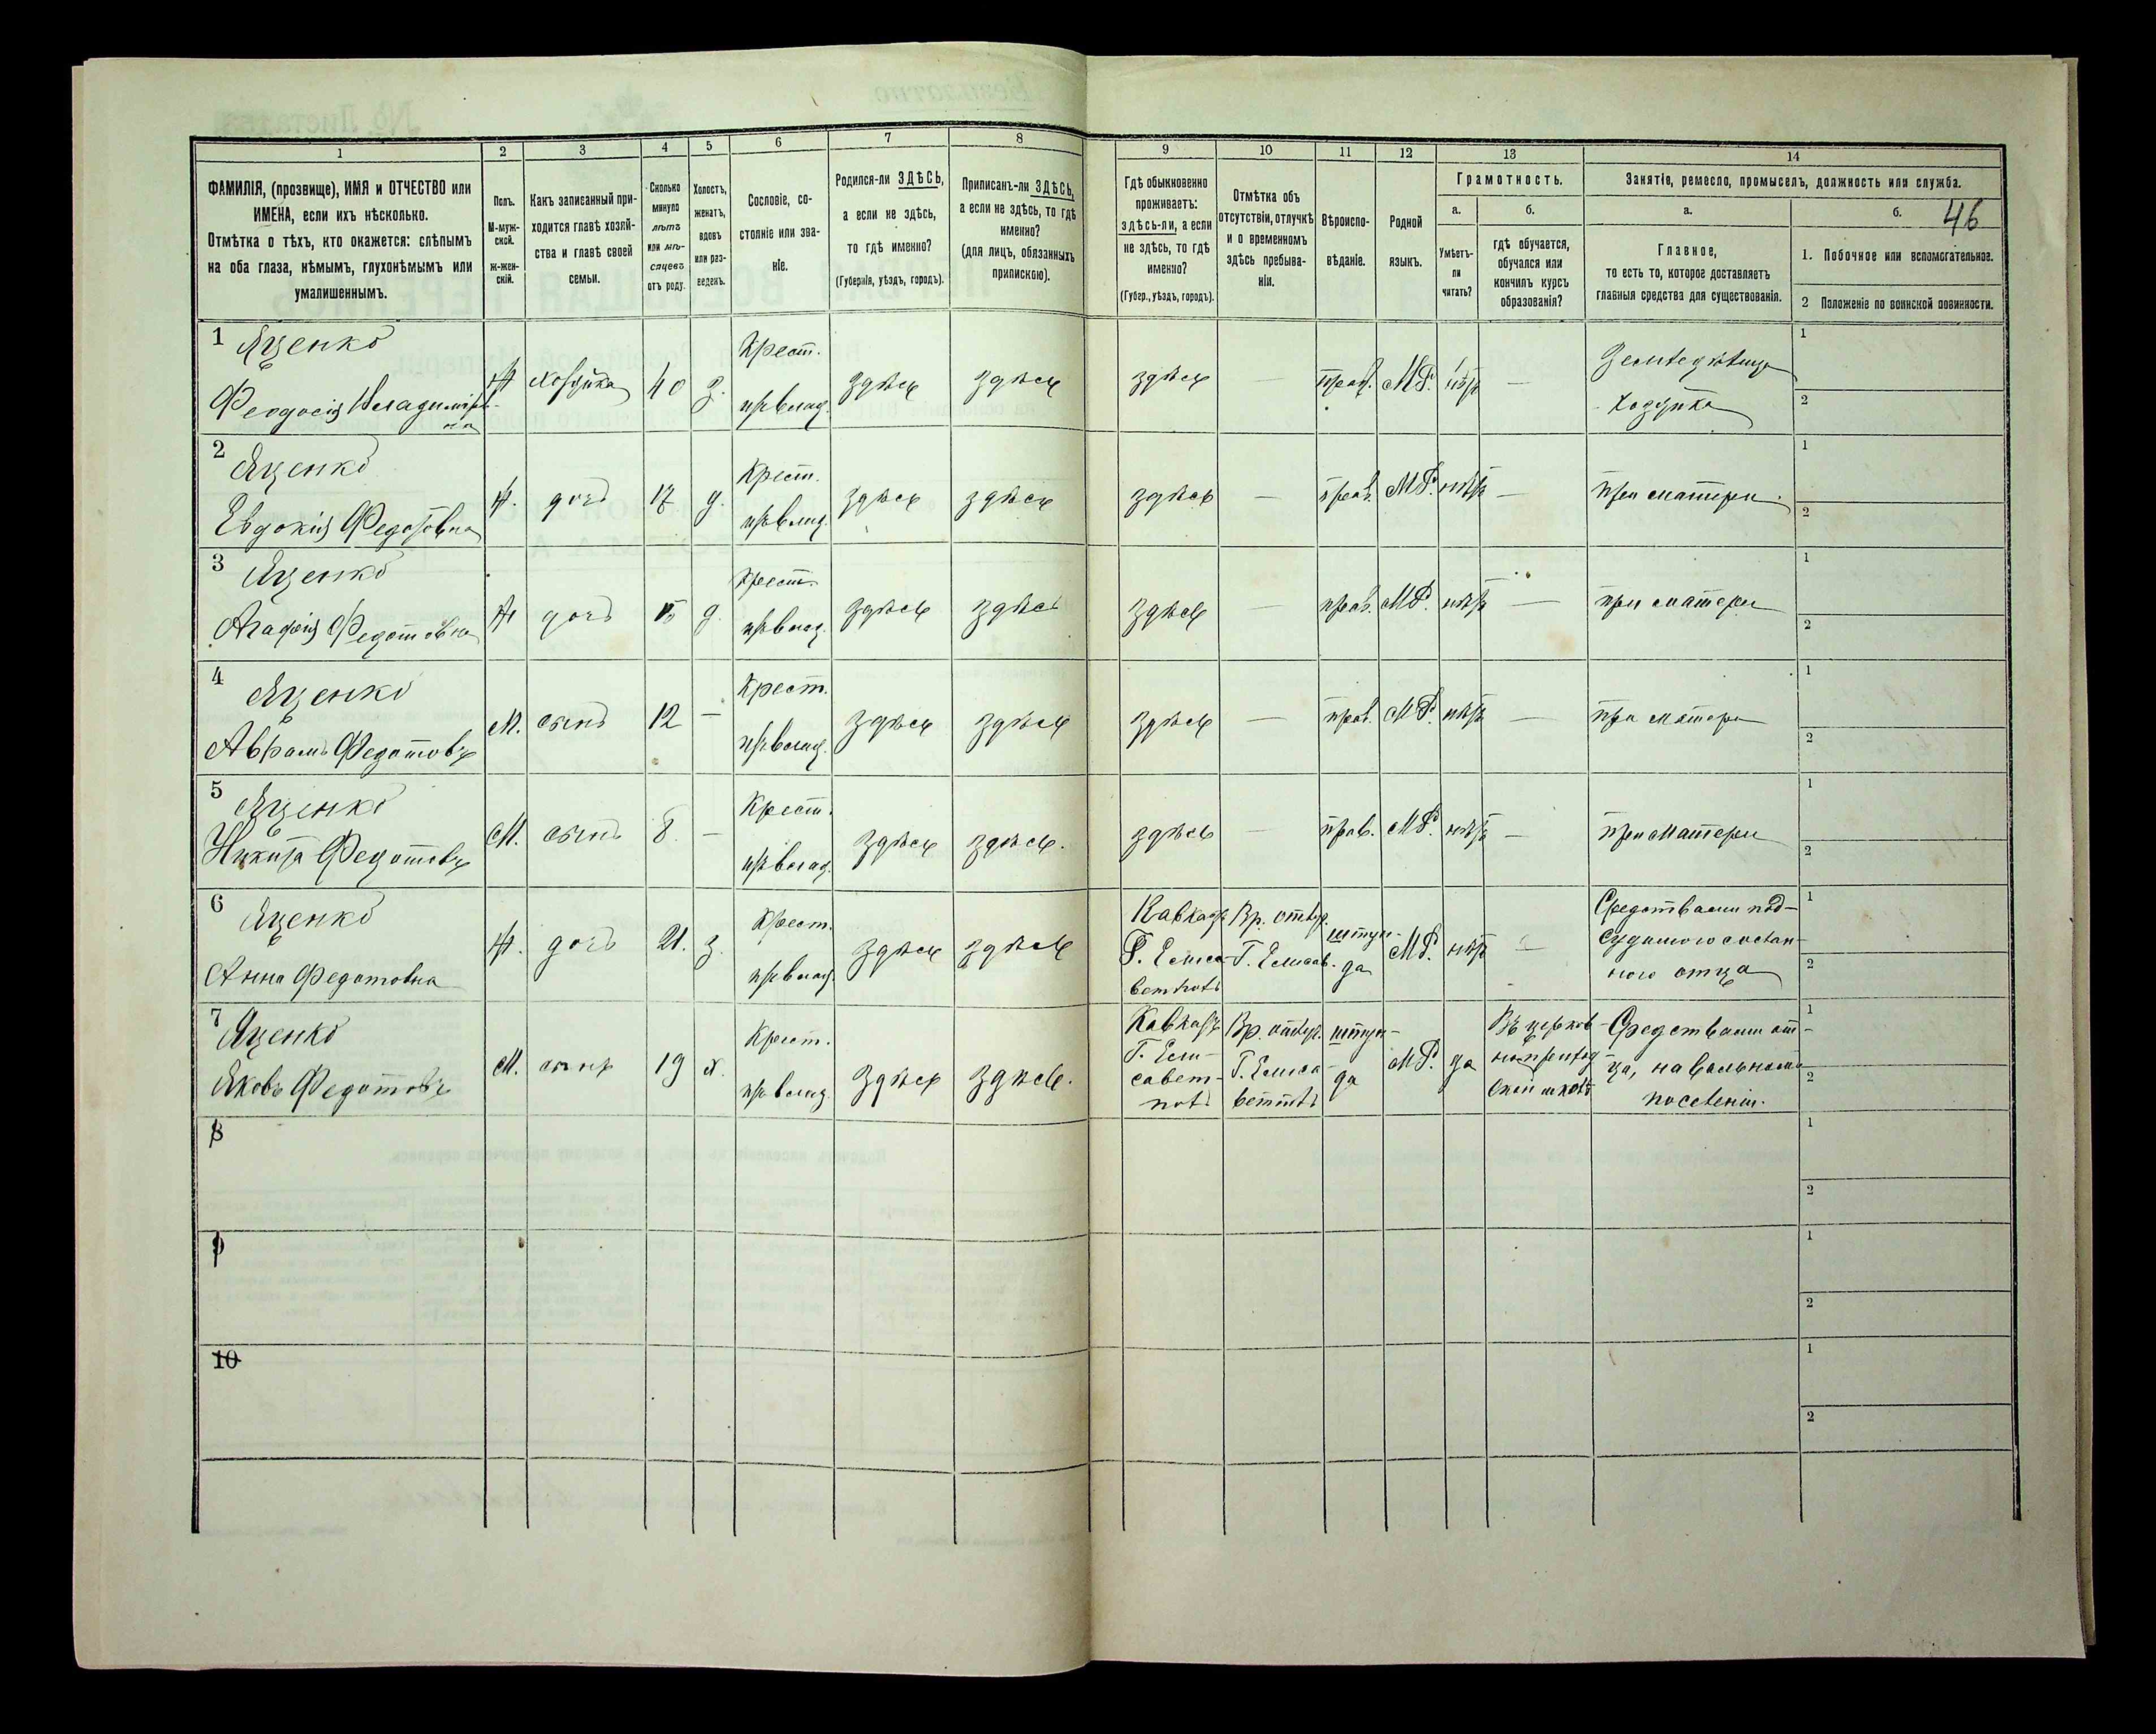 46
1 2 3 4 5 6 7 8 9 10 11 12 13 14
ФАМИЛІЯ, (прозвище), ИМЯ и ОТЧЕСТВО или ИМЕНА, если ихъ нѣсколько.
Отмѣтка о тѣхъ, кто окажется: слѣпымъ на оба глаза, нѣмымъ, глухонѣмымъ или умалишеннымъ.
Полъ.
М-муж-
ской.
ж-жен-
скій.
Какъ записанный при-
ходится главѣ хозяй-
ства и главѣ своей
семьи.
Сколько
минуло
лѣтъ
или мѣ-
сяцевъ
отъ роду.
Холостъ,
женатъ,
вдовъ
или раз-
веденъ.
Сословіе, со-
стояніе или зва-
ніе.
Родился-ли ЗДѢСЬ,
а если не здѣсь,
то гдѣ именно?
(Губернія, уѣздъ, городъ).
Приписанъ-ли ЗДѢСЬ,
а если не здѣсь, то гдѣ
именно?
(для лицъ, обязанныхъ
припискою).
Гдѣ обыкновенно
проживаетъ:
здѣсь-ли, а если
не здѣсь, то гдѣ
именно?
(Губер., уѣздъ, городъ).
Отмѣтка объ
отсутствіи, отлучкѣ
и о временномъ
здѣсь пребыва-
ніи.
Вѣроиспо-
вѣданіе.
Родной
языкъ.
Грамотность.
а.
Умѣетъ-
ли
читать?
б.
гдѣ обучается,
обучался или
кончилъ курсъ
образованія?
Занятіе, ремесло, промыселъ, должность или служба.
а.
Главное,
то есть то, которое доставляетъ
главныя средства для существованія.
б.
1. Побочное или вспомогательное.
2 Положеніе по воинской повинности.
1 Яценко
Феодосія Владимiров-
на
Ж хозяйка 40 з. Крест.
из влад. здѣсь здѣсь здѣсь — прав. МР. нѣтъ — Земледѣлица
хозяйка 1 2
2 Яценко
Евдокія Федотовна
Ж. дочь 17 д. Крест.
из влад. здѣсь здѣсь здѣсь — прав. МР. нѣтъ — при матери 1 2
3 Яценко
Агафія Федотовна
Ж дочь 15 д. Крест.
из влад. здѣсь здѣсь здѣсь — прав. МР. нѣтъ — при матери 1 2
4 Яценко
Аврамъ Федотовъ
М. сынъ 12 — Крест.
из влад. здѣсь здѣсь здѣсь — прав. МР. нѣтъ — при матери 1 2
5 Яценко
Никита Федотовъ
М. сынъ 8. — Крест.
из влад. здѣсь здѣсь. здѣсь — прав. МР. нѣтъ — при матери 1 2
6 Яценко
Анна Федотовна
Ж. дочь 21. з. Крест.
из влад. здѣсь здѣсь Кавказъ
Г. Елиса-
ветполь Вр. отлуч.
Г. Елисав. штун-
да МР. нѣтъ — Средствами под-
судимого
отца 1 2
7 Яценко
Яковъ Федотовъ
М. сынъ 19 х. Крест.
из влад. здѣсь здѣсь. Кавказъ
Г. Ели-
савет-
поль Вр. отлуч.
Г. Елиса-
штун-
да МР. да Въ церков-
но приход-
ской школѣ Средствами от-
ца, на вольномъ
поселеніи. 1 2
8 1 2
9 1 2
10 1 2